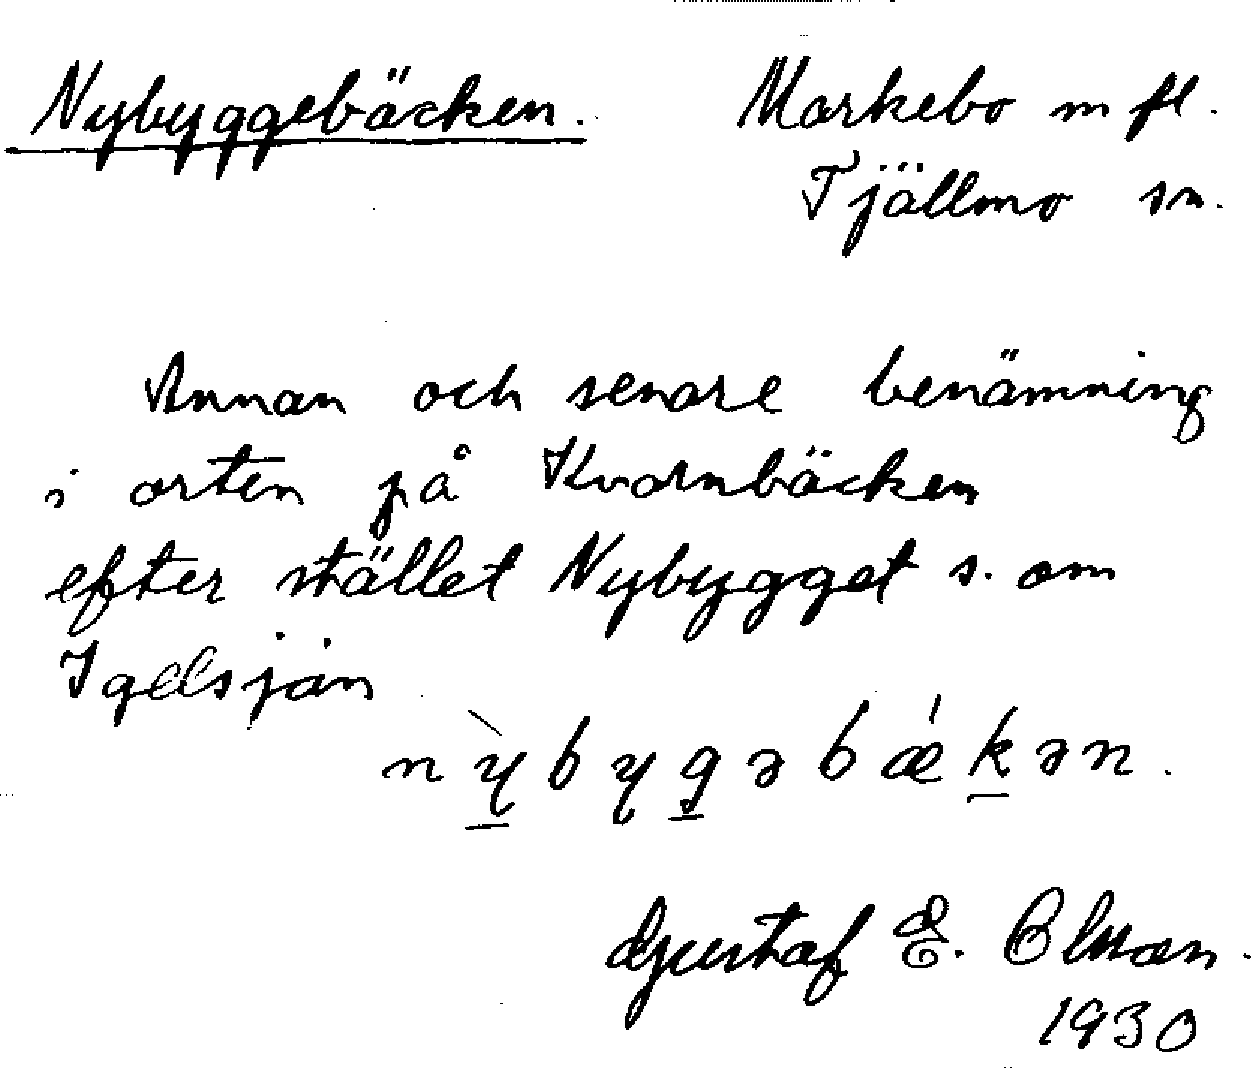 Nybyggebäcken. Markebo m fl.
Tjällmo sn.
Annan och senare benämning
i orten på Kvarnbäcken
efter stället Nybygget s. om
Igelsjön
nỳbygəbǽkən.
Gustaf E. Olsson.
1930